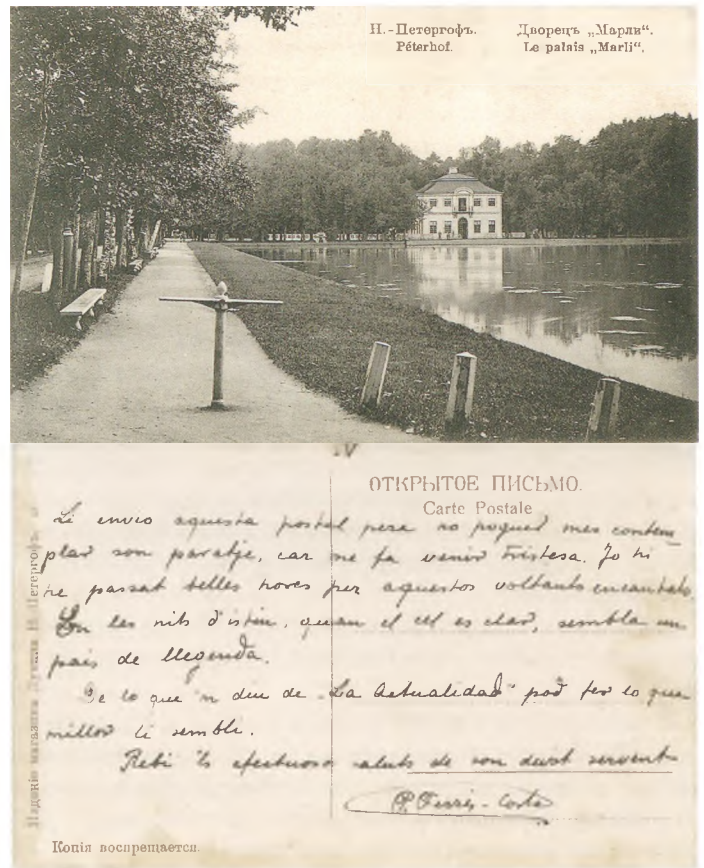 Н.-Петергофъ. Дворецъ „Марли“.
Péterhof. Le palais „Marli“.
ОТКРЫТОЕ ПИСЬМО.
Carte Postale
Li envio aquesta postal pera no poguer mes contem_
plar son paratje, car me fa venir tristesa. Jo hi
he passat belles hores per aquestos voltants encantats.
En les nits d'istiu, quan el cel es clar, sembla un
pais de llegenda.
De lo que 'n diu de "La Actualidad" pod fer lo que
millor li sembli.
Rebi 'ls efectuosos saluts de son devot servent
Копія воспрещается.